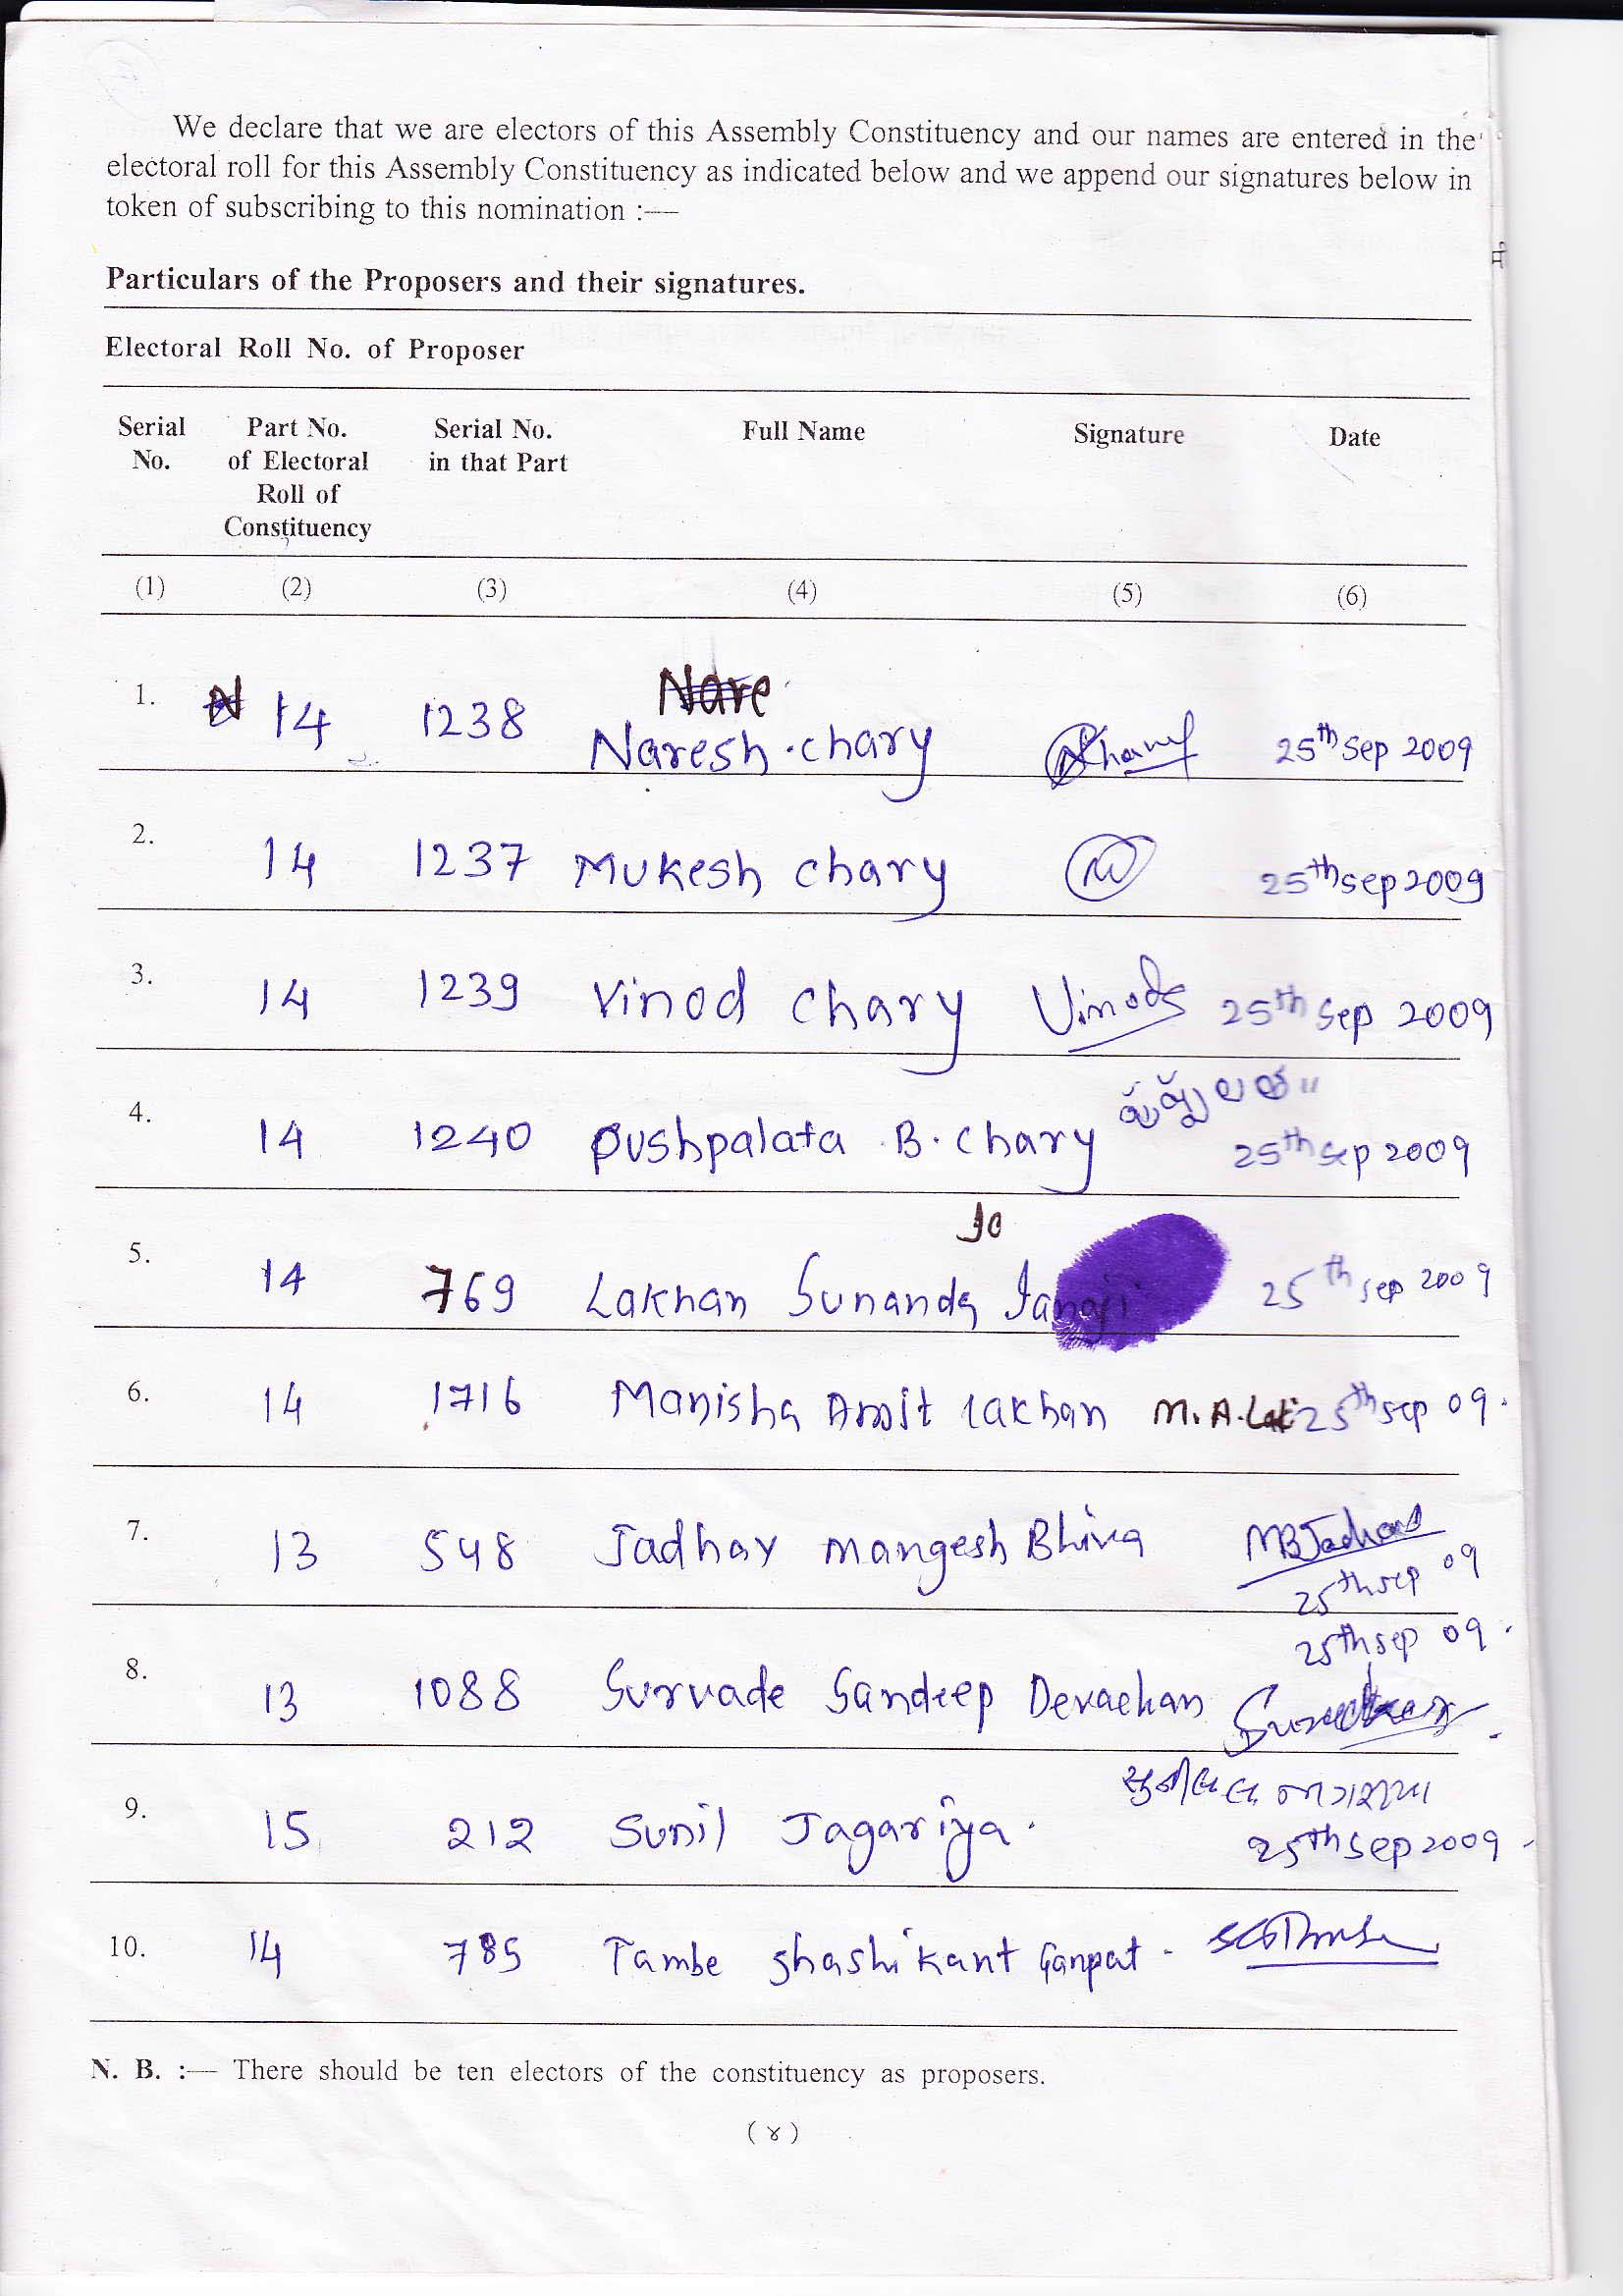 We declare that we are electors of this Assembly Constituency and our names are entered in the
electoral roll for this Assembly Constituency as indicated below and we append our signatures below in
token of subscribing to this nomination :—
Particulars of the Proposers and their signatures.
Electoral Roll No. of Proposer
Serial No. Part No. of Electoral Roll of Constituency Serial No. in that Part Full Name Signature Date
(1) (2) (3) (4) (5) (6)
Nare
1. 14 1238 Naresh . chary 25th Sep 2009
2. 14 1237 Mukesh chary 25th sep 2009
3. 14 1239 Vinod chary Vinod 25th Sep 2009
4. 14 1240 Pushpalata B. Chary
25th Sep 2009
5. 14 769 Lakhan Sunanda Janaji 25th sep 2009
6. 14 1716 Manisha Amit Lakhan M. A. Lak 25th sep 09.
7. 13 548 Jadhav Mangesh Bhiva MBJadhav
25th sep 09
25th sep 09.
8. 13 1088 Survade Sandeep Devachan
9. 15 212 Sunil Jagariya.
25th Sep 2009
10. 14 785 Tambe Shashikant Ganpat -
N. B. :— There should be ten electors of the constituency as proposers.
(४)